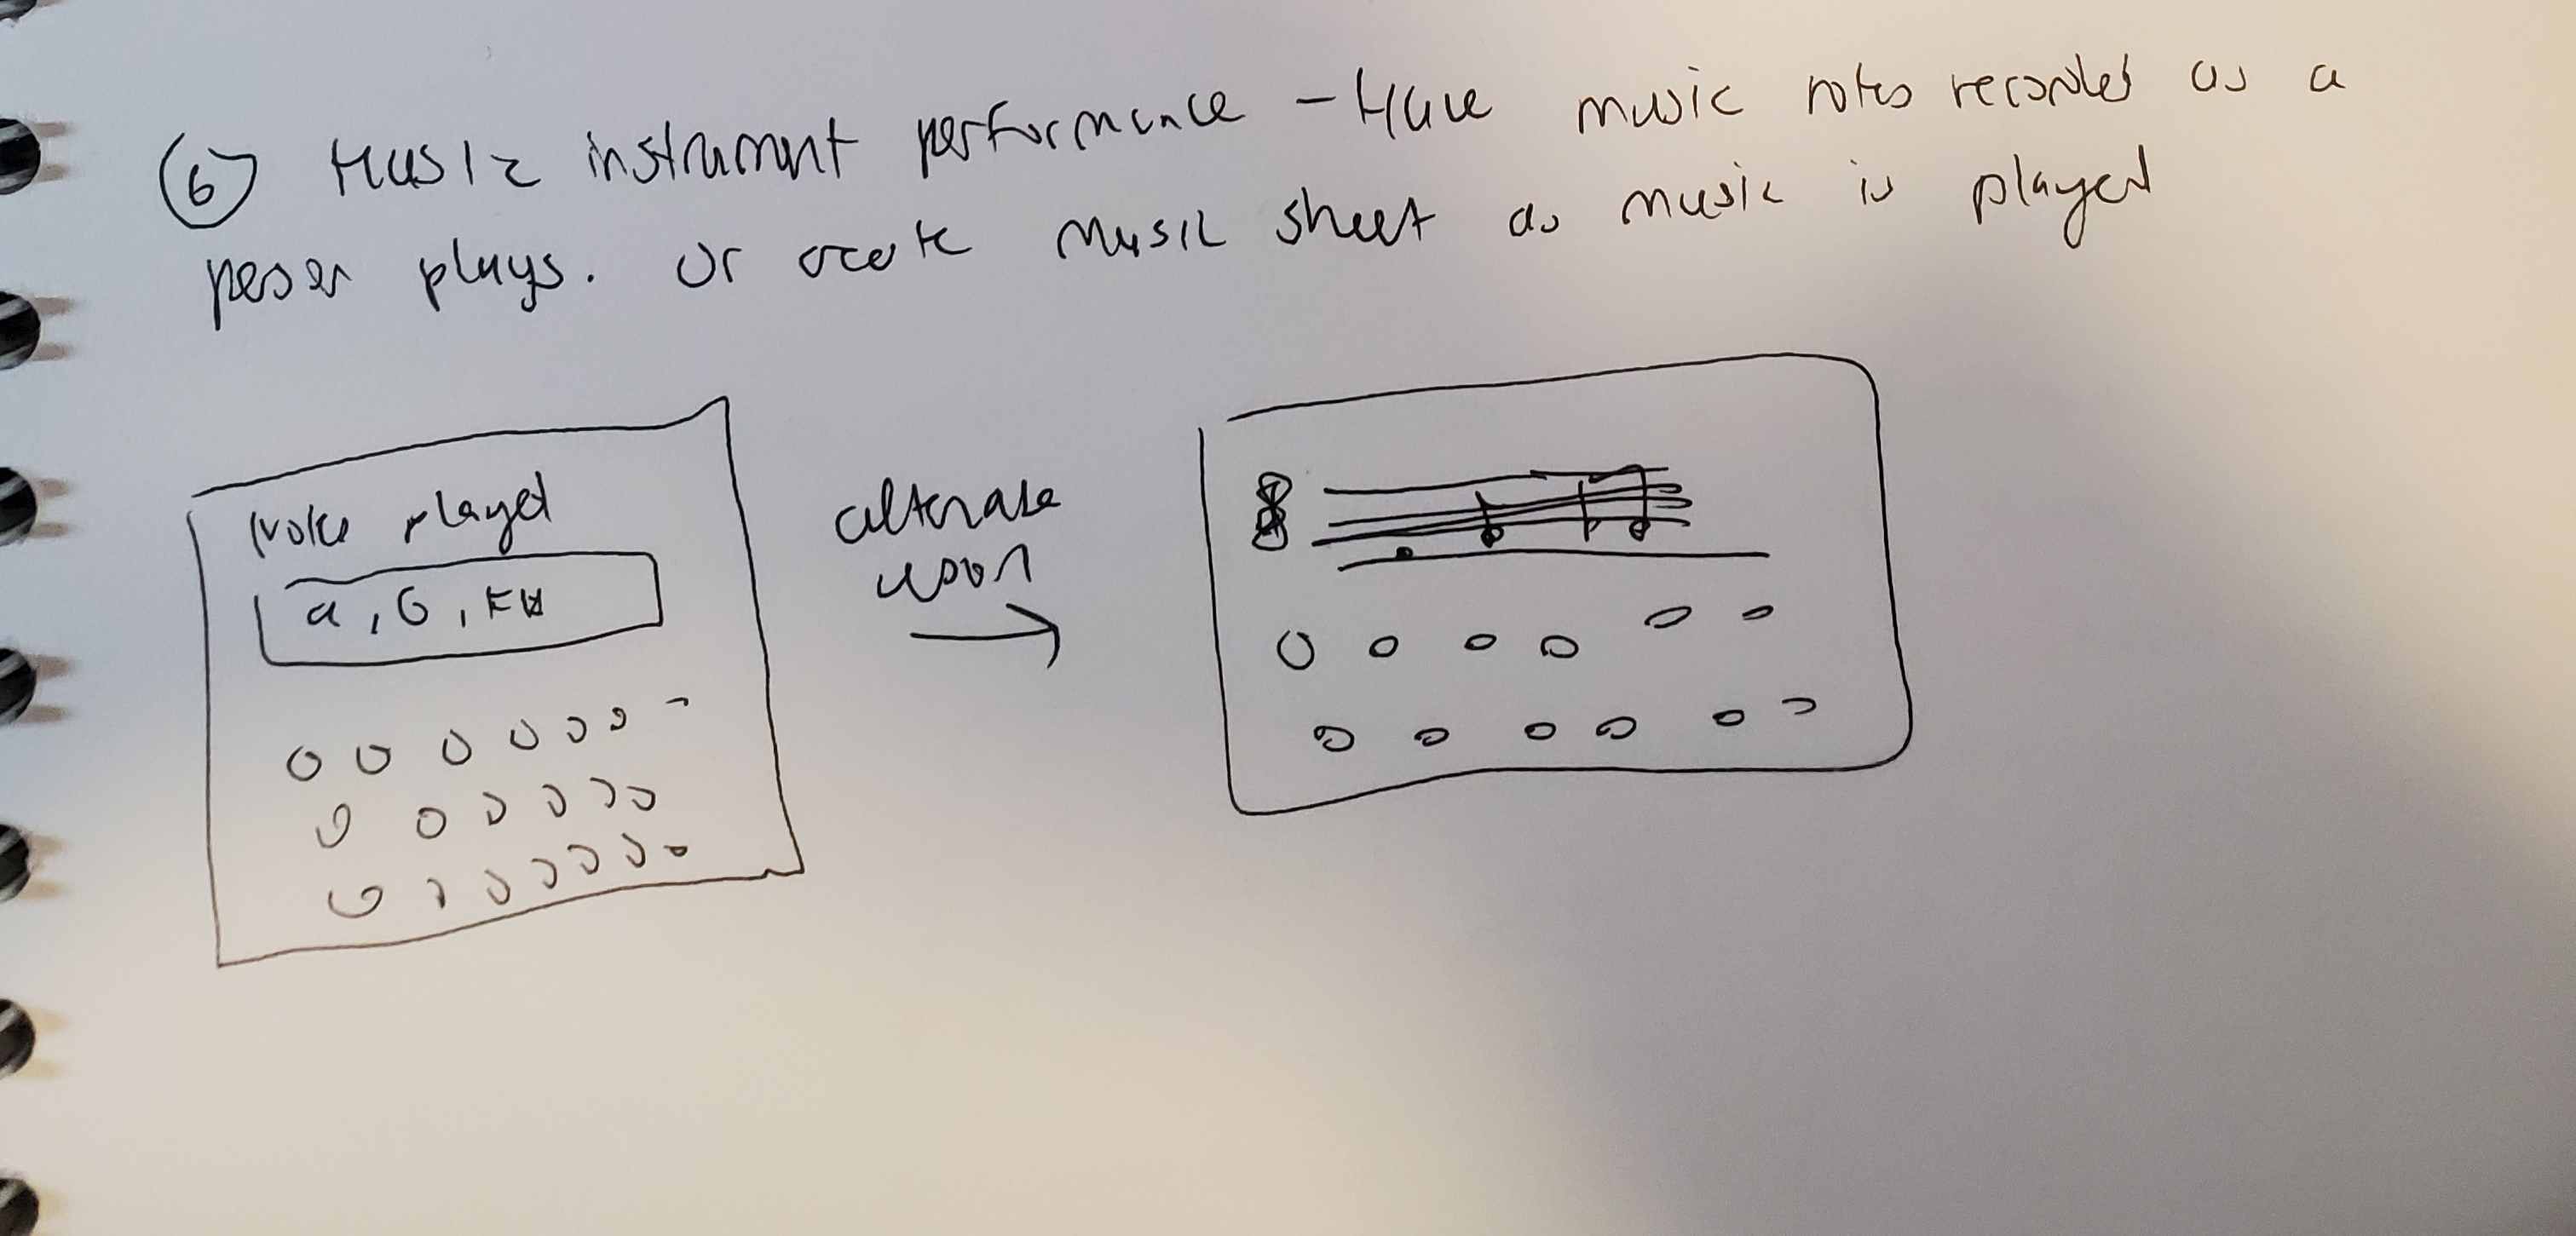 6 Music instrument performance - Have music notes recorded as a
person plays. Or create music sheet as music is played
Notes played
a, G, F#
alternate